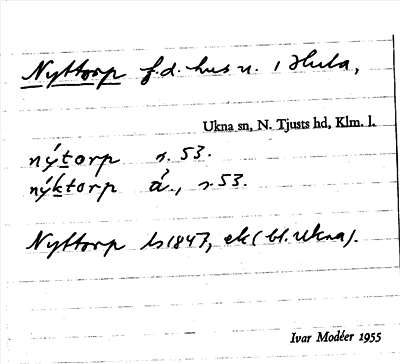 Nyttorp f.d. hus u. Hula,
Ukna sn, N. Tjusts hd, Klm. l.
nýtorp s. 53.
nýktorp á., s. 53.
Nyttorp ls 1847, ek (bl. Ukna).
Ivar Modéer 1955